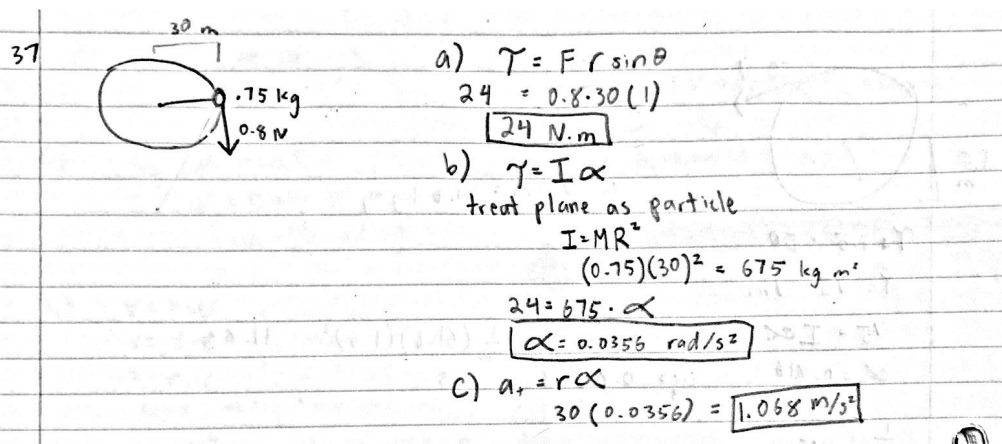 37
30 m
.75 kg
0.8 N
a) τ = F r sinθ
24 = 0.8·30 (1)
24 N·m
b) τ = I α
treat plane as particle
I = MR²
(0.75)(30)² = 675 kg m²
24 = 675 · α
α = 0.0356 rad/s²
c) aₜ = rα
30 (0.0356) = 1.068 m/s²